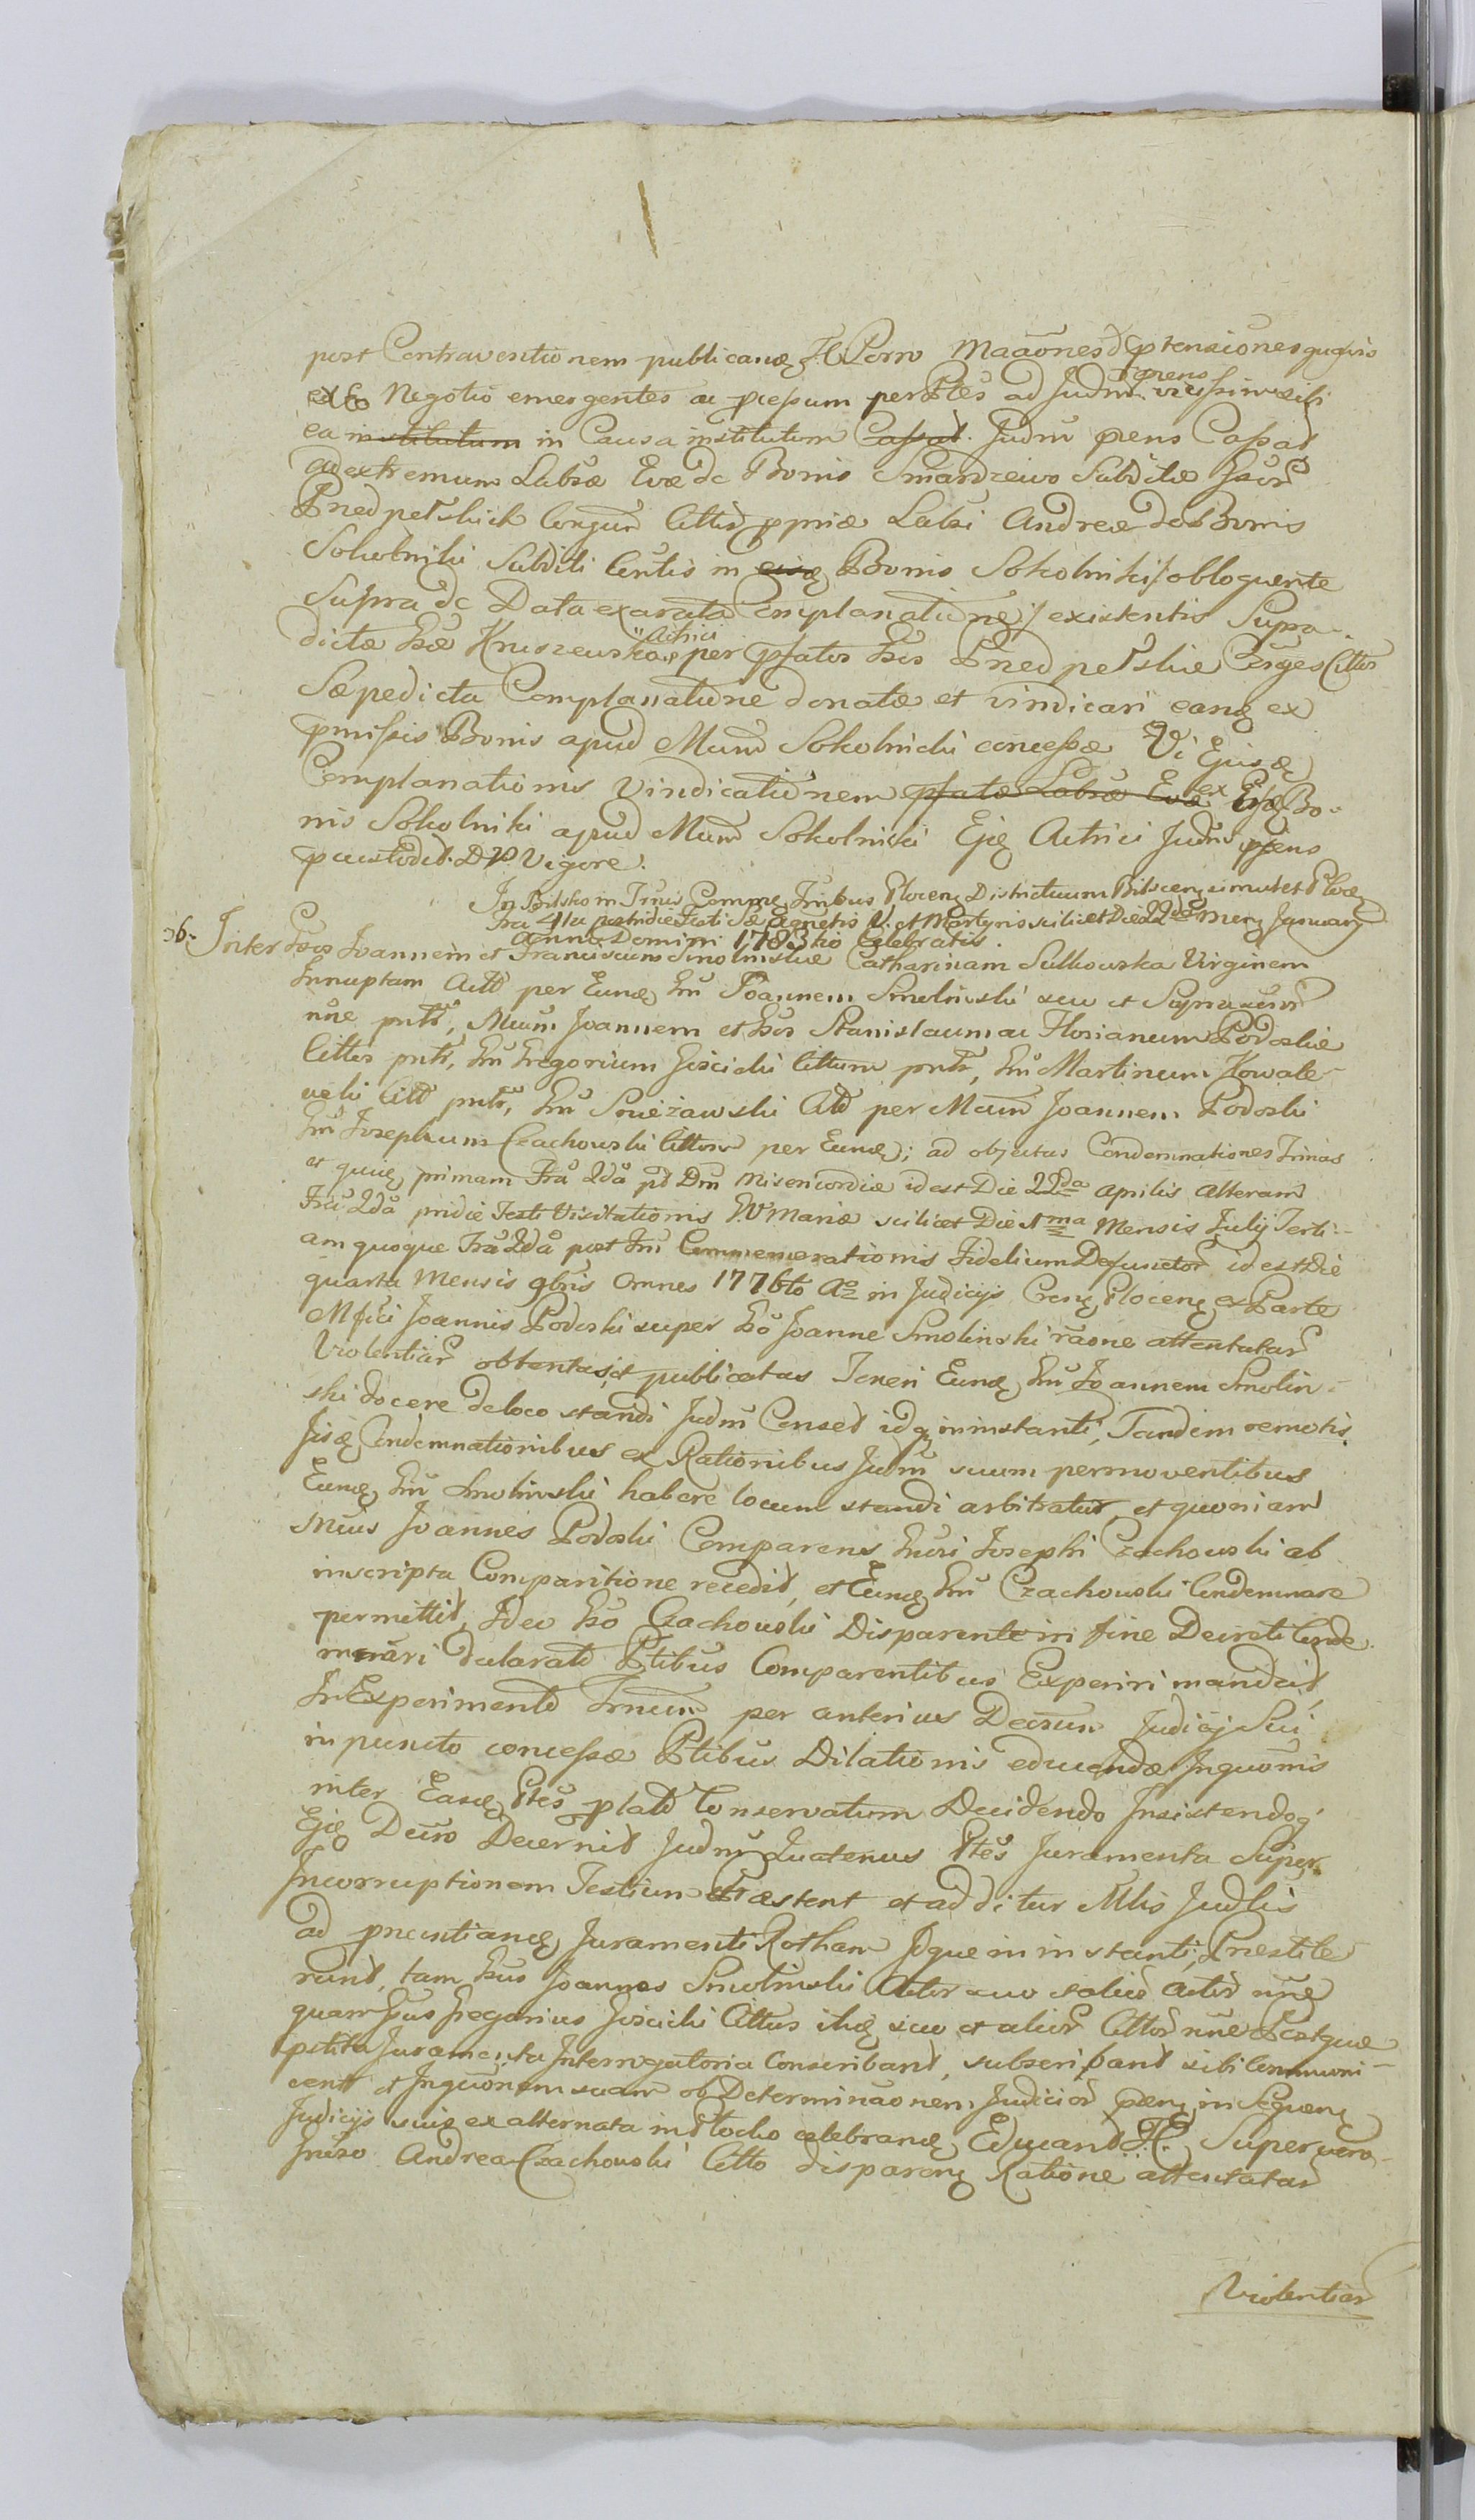 post Contraventionem publicanę H Porro Maaōnes et Ptensiones quasvis
ex Eo Negotio emergentes ac pcessum per Ptes ad Judm prens vicissim sibi
ea institutum in Causa institutum Cassat. Judm prens Cassat
ad extremum Labsæ Evæ de Bonis Smardzewo Subditæ Gsor
Przedpełskich Conjum Cittor ppriæ Labsi Andreæ de Bonis
Sokolniki Subditi Centis in eisdę Bonis Sokolniki /obloquente
Supra de Data exarata Complanatiōne/ existentis Supra
dictæ Gsæ Kruszewska Actrici per pfatos Gsos Przedpełskie Cjges Cittos
Sæpedicta Complanatiōne donatæ et vindicari eang ex
pmissis Bonis apud Mum Sokolnicki concessæ Vi Ejusdę
Complanationis Vindicatiōnem pfatæ Labsæ Evæ ex Eisdę Bo-
nis Sokolniki apud Mum Sokolnicki Ejdę Actrici Judm prens
pcustodit. D. P. Vigore.
In Bielsko in Trnis Commę Trribus Plocenę Districtuum Bilscenę simul et Plocę
Fra 4ta postridie Festi Sæ Agnetis V. et Martyris scilicet Die 22da Mens Januarij
Anno Domini 1783tio Celebratis.
36. Inter Gsos Joannem et Franciscum Smolinskie Catharinam Sulkowska Virginem
Innuptam Actō per Eundę Gm Joannem Smolinski suo et Supra suorō
nne pntō, Mum Joannem et Gsos Stanislaum ac Florianum Podoskie
Cittos pntō, Gm Gregorium Goscicki Cittum pntō, Gm Martinum Kowale-
wski Citō pntō, Gm Smieżawski Citō per Mum Joannem Podoski
Gm Josephum Czachowski Cittum per Eundę; ad objectas Condemnationes Trinas
et quidę primam Fra 2da pt Dm Misericordiæ id est Die 22da Aprilis alteram
Fra 2da pridie Festi Visitationis BV Mariæ scilicet Die 1ma Mensis Julij Terti-
am quoque Fra 2da post Fm Commemorationis Fidelium Defunctor id est Die
quarta Mensis 9bris Omnes 1776to Ao in Judicijs Crenę Plocenę ex Parte
Mfici Joannis Podoski super Gso Joanne Smolinski raone attentatar
Violentiar obtentas, et publicatas Teneri Eundę Gm Joannem Smolin-
ski docere de loco standi Judm Censet idq in instanti, Tandem remotis
Jisdę Condemnationibus ex Rationibus Judm suum permoventibus
Eundę Gm Smolinski habere locum standi arbitratur, et quoniam
Mus Joannes Podoski Comparens Gnrosi Josephi Czachowski ab
inscripta Comparitione recedit, et Eundę Gm Czachowski Condemnare
permittit, Ideo Gso Czachowski Disparente in fine Decreti Conde-
mnari declarato Ptibus Comparentibus Experiri mandavit
In Experimento Trnum per anterius Decrum Judicij Sui
in puncto concessæ Ptibus Dilationis educendæ Inquonis
inter Easdę Ptes platō Conservatum Decidendo Insistendoq
Ejdę Decro Decernit Judm Quatenus Ptes Juramenta Super
Incorruptionem Testium Præstent et additur Mlis Judlis
ad pneuntiandę Juramenti Rotham Idque in instanti, Præstite-
runt, tam Gsus Joannes Smolinski Actor suo et alior Actor nne
quam Gsus Gregorius Goscicki Cittus itidę suo et alior Cittor nne Postque
pstita Juramenta Interrogatoria Conscribant, subscribant sibi Communi-
cent et Inquonem suam ob Determinaonem Judicior pren in Sequenę
Judicijs suis ex alternata in Plocko celebrandę Educant H Super vero
Gnroso Andrea Czachowski Citto disparenę Ratione attentatar
Violentiar